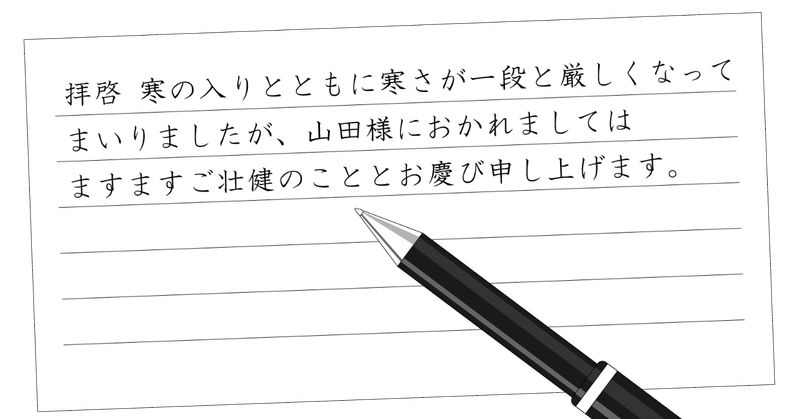 拝啓 寒の入りとともに寒さが一段と厳しくなって
まいりましたが、山田様におかれましては
ますますご壮健のこととお慶び申し上げます。